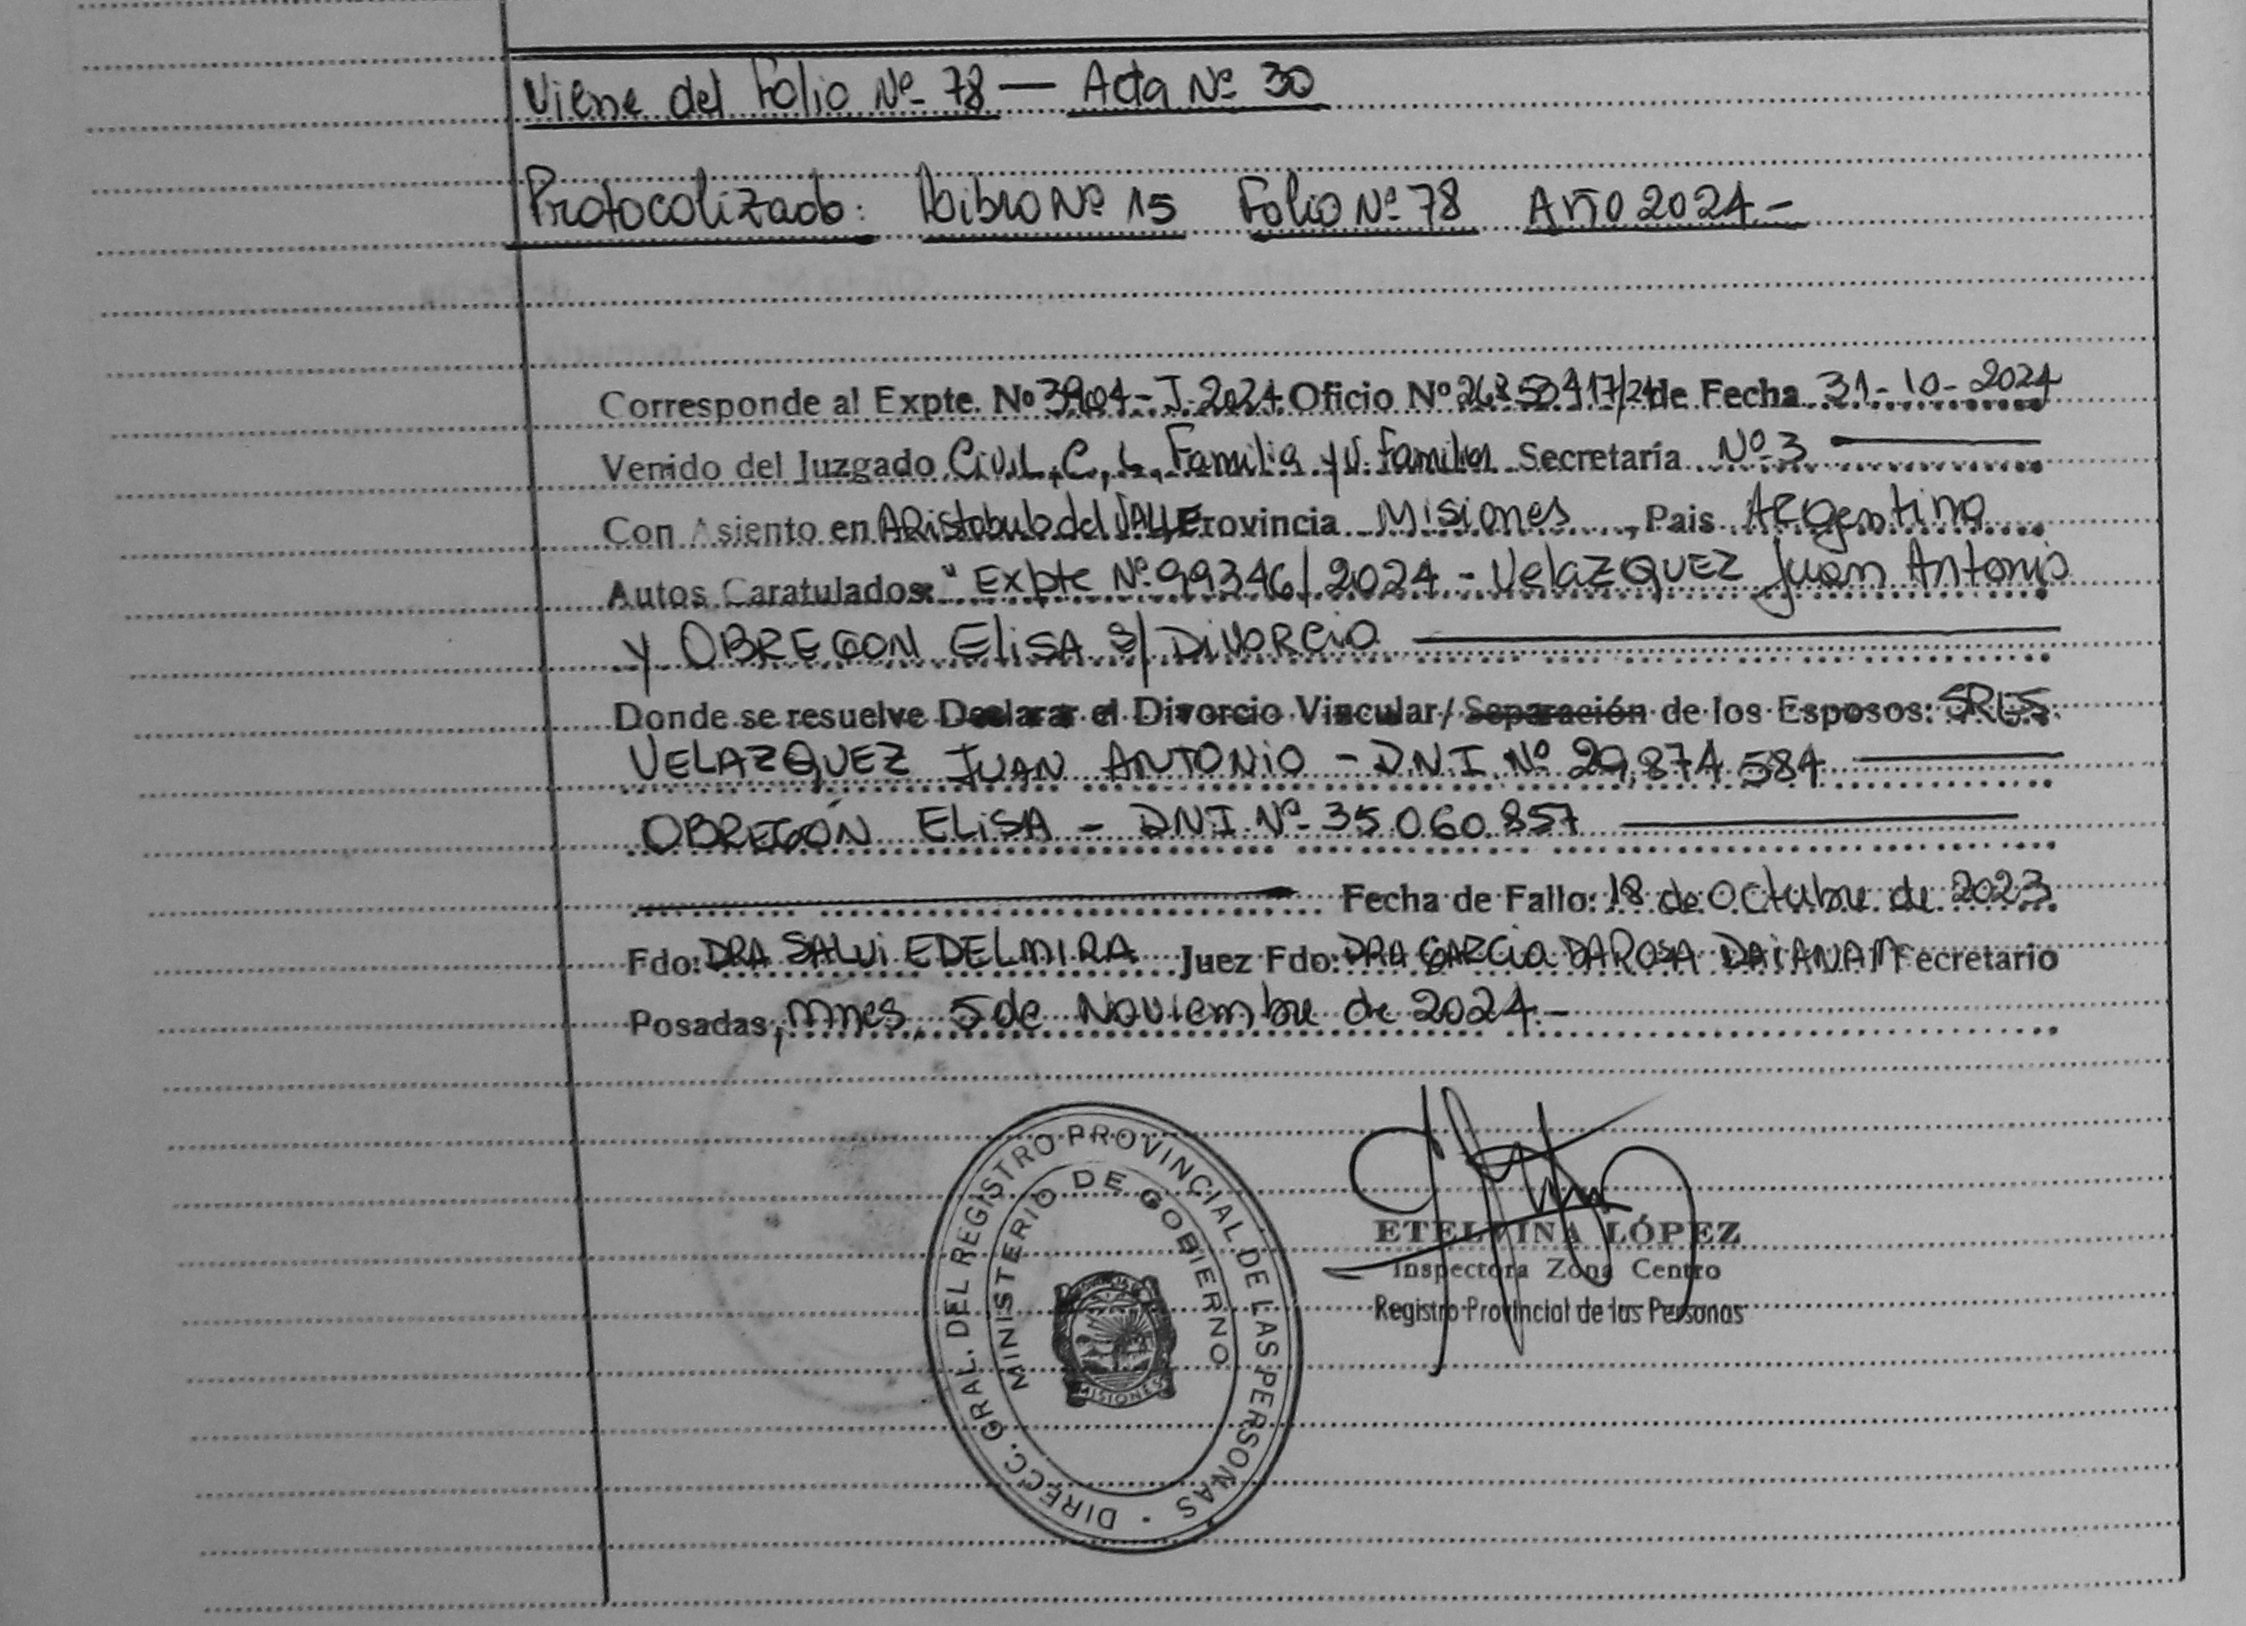 Viene del Folio Nº 78 — Acta Nº 30
Protocolizado: Libro Nº 15 Folio Nº 78 Año 2024.-
Corresponde al Expte. Nº 3904-J-2024 Oficio Nº 26850417/24 de Fecha 31-10-2024
Venido del Juzgado Civil, C, L, Familia y V. Familiar Secretaría Nº 3
Con Asiento en Aristobulo del Valle Provincia Misiones, Pais Argentina
Autos Caratulados: "Expte Nº 99346/2024 - Velazquez Juan Antonio
y OBREGON ELISA S/ DIVORCIO
Donde se resuelve Declarar el Divorcio Vincular/ Separación de los Esposos: SRES
VELAZQUEZ JUAN ANTONIO - D.N.I. Nº 29.874.584
OBREGÓN ELISA - DNI Nº 35.060.857
Fecha de Fallo: 18 de Octubre de 2023
Fdo: DRA SALVI EDELMIRA Juez Fdo: DRA GARCIA DAROSA DAIANA M Secretario
Posadas, Mnes, 5 de Noviembre de 2024.-
DIRECC. GRAL. DEL REGISTRO PROVINCIAL DE LAS PERSONAS
MINISTERIO DE GOBIERNO
MISIONES
ETELVINA LÓPEZ
Inspectora Zona Centro
Registro Provincial de las Personas